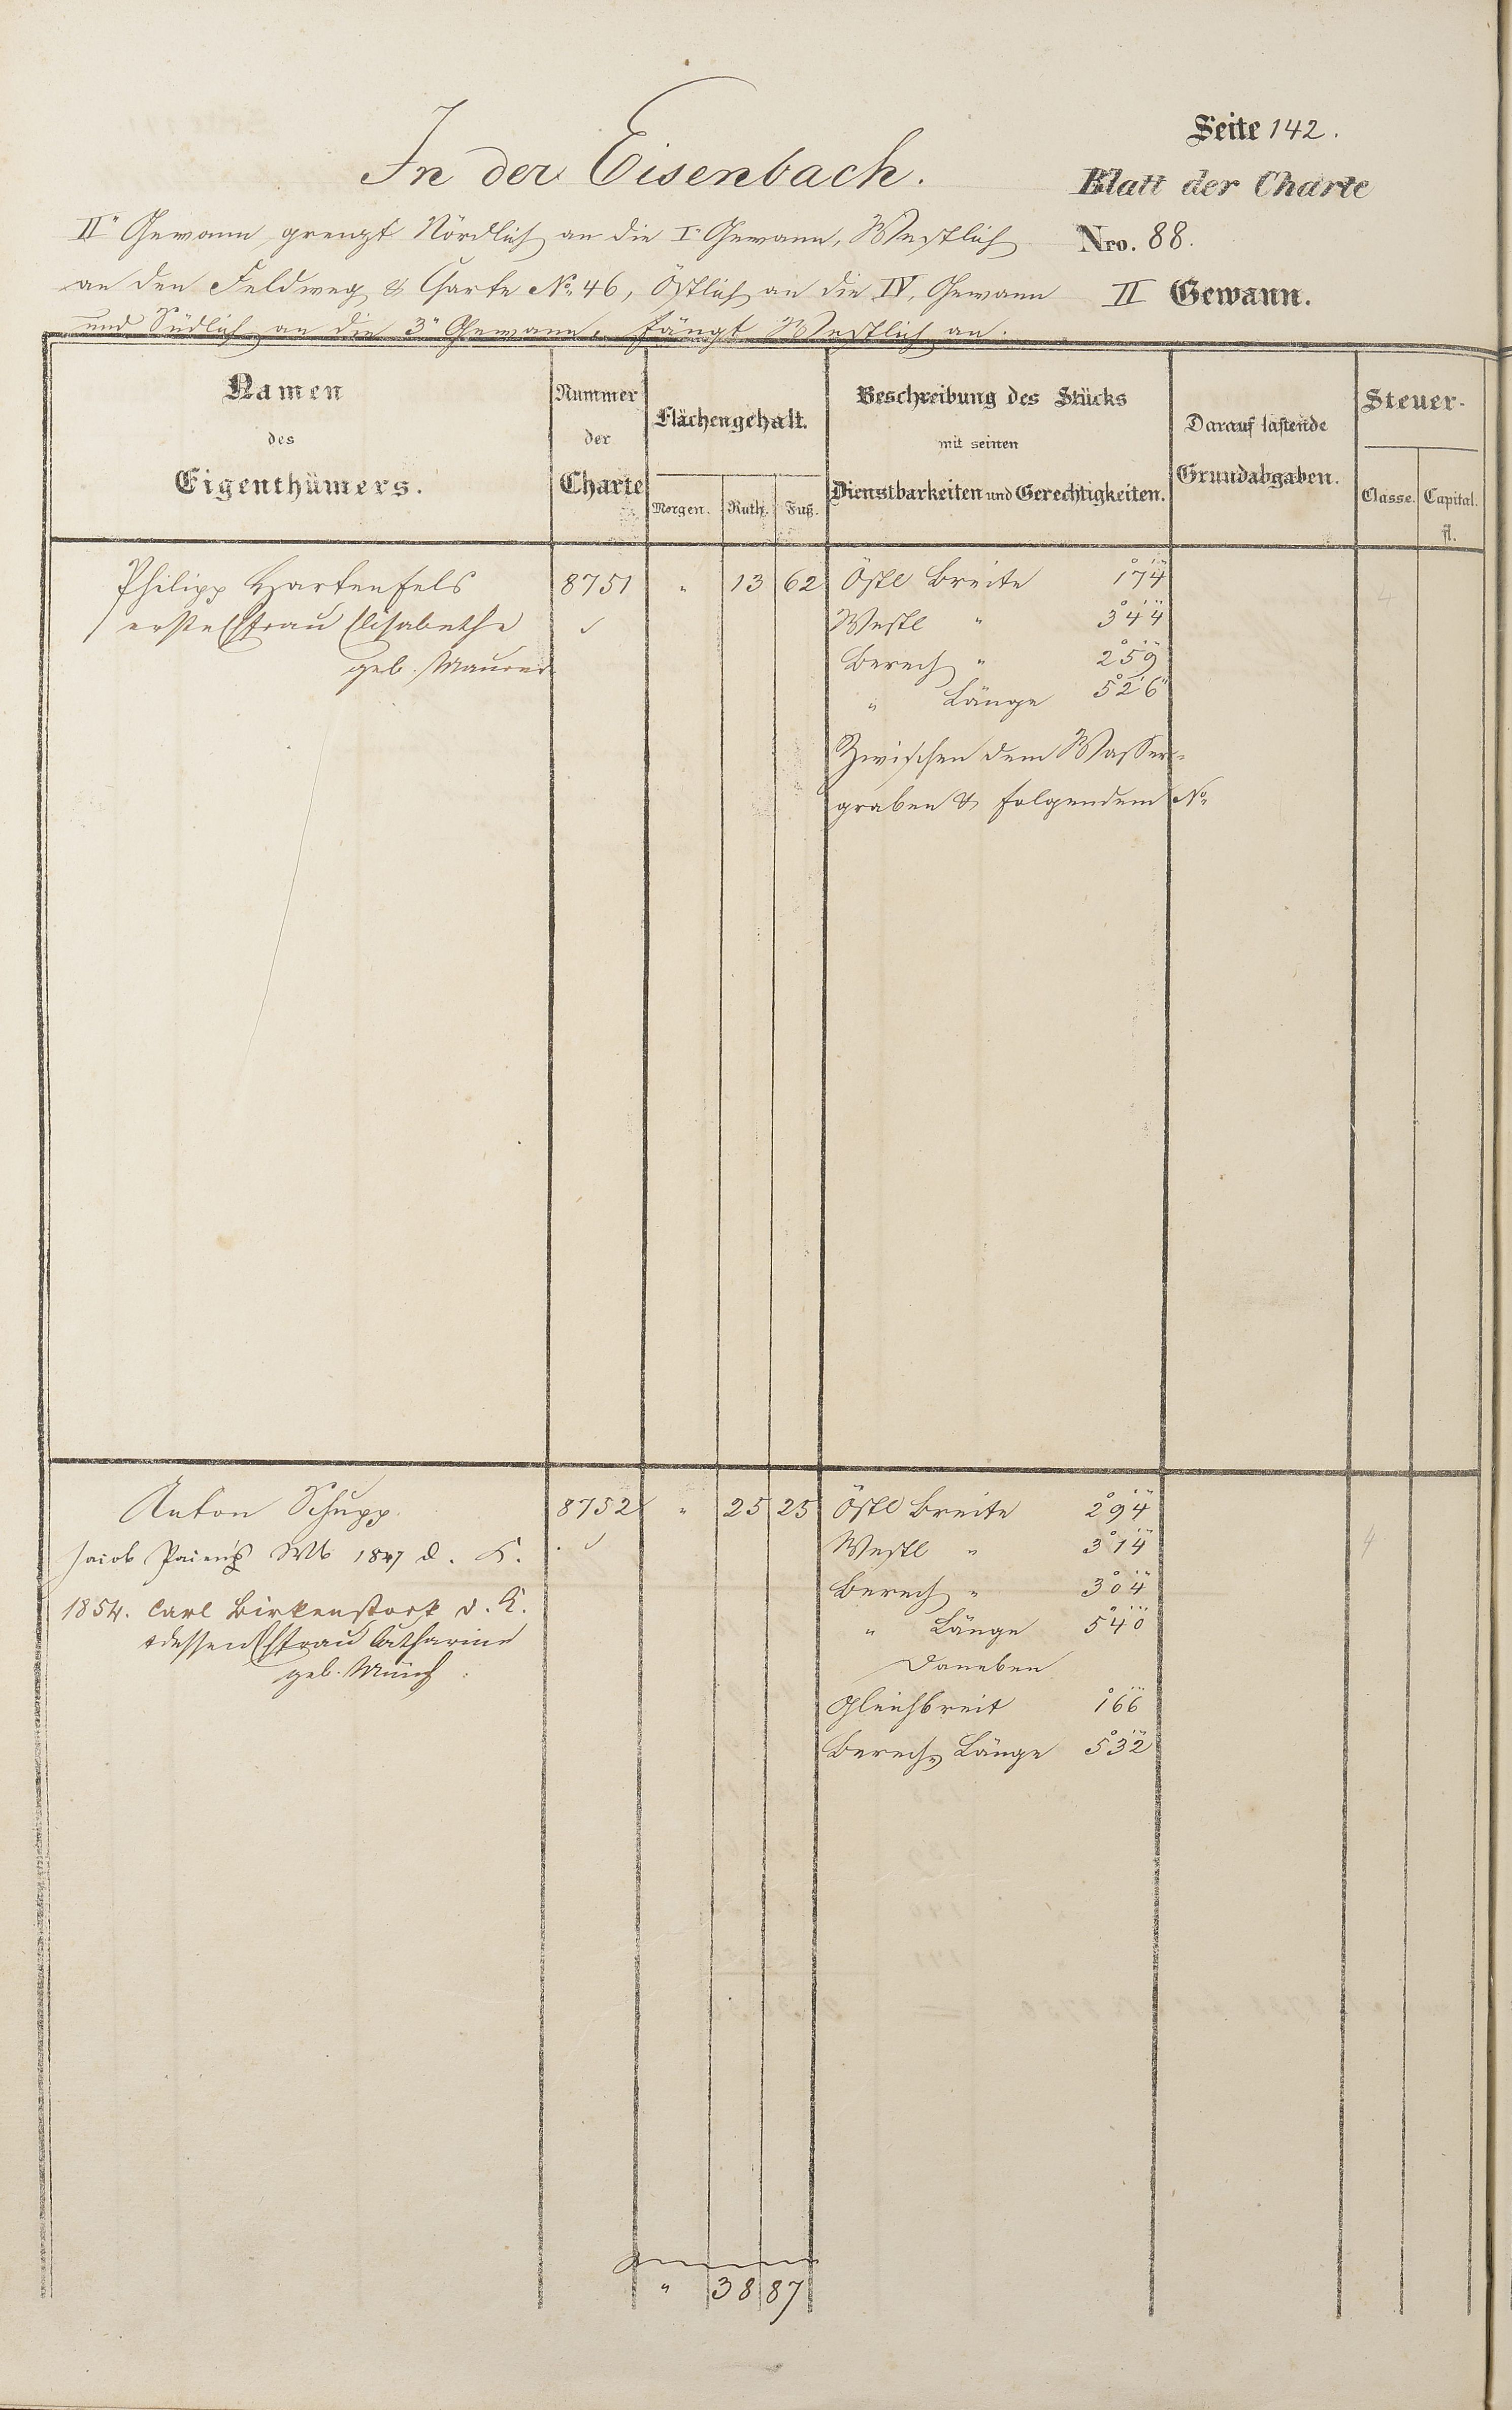 Seite 142.
In der Eisenbach.
Blatt der Charte
II" Gewann grenzt Nördlich an die I" Gewann, Westlich
Nro. 88.
an den Feldweg & Charte No. 46, Östlich an die IV. Gewann
II Gewann.
und Südlich an die 3" Gewann, fängt Westlich an.
Namen
des
Eigenthümers.
Nummer
der
Charte
Flächengehalt.
Morgen. Ruth. Fuß.
Beschreibung des Stücks
mit seinen
Dienstbarkeiten und Gerechtigkeiten.
Darauf lastende
Grundabgaben.
Steuer-
Classe. Capital.
fl.
Philipp Hartenfels 8751 " 13 62 Östl Breite 174 4
erste Ehfrau Elisabethe Westl " 344
geb. Maurer Berech " 259
" Länge 526
Zwischen dem Wasser-
graben & folgendem No.
Anton Schupp. 8752 " 25 25 Östl Breite 294
Jacob Wb 1847 d. K. Westl " 314 4
Berech " 304
1854. Carl Birkenstock d. K.
" Länge 540
& dessen Ehfrau Catharine
Daneben
geb. Münch
Gleichbreit 166
Berech. Länge 532
" 38 87